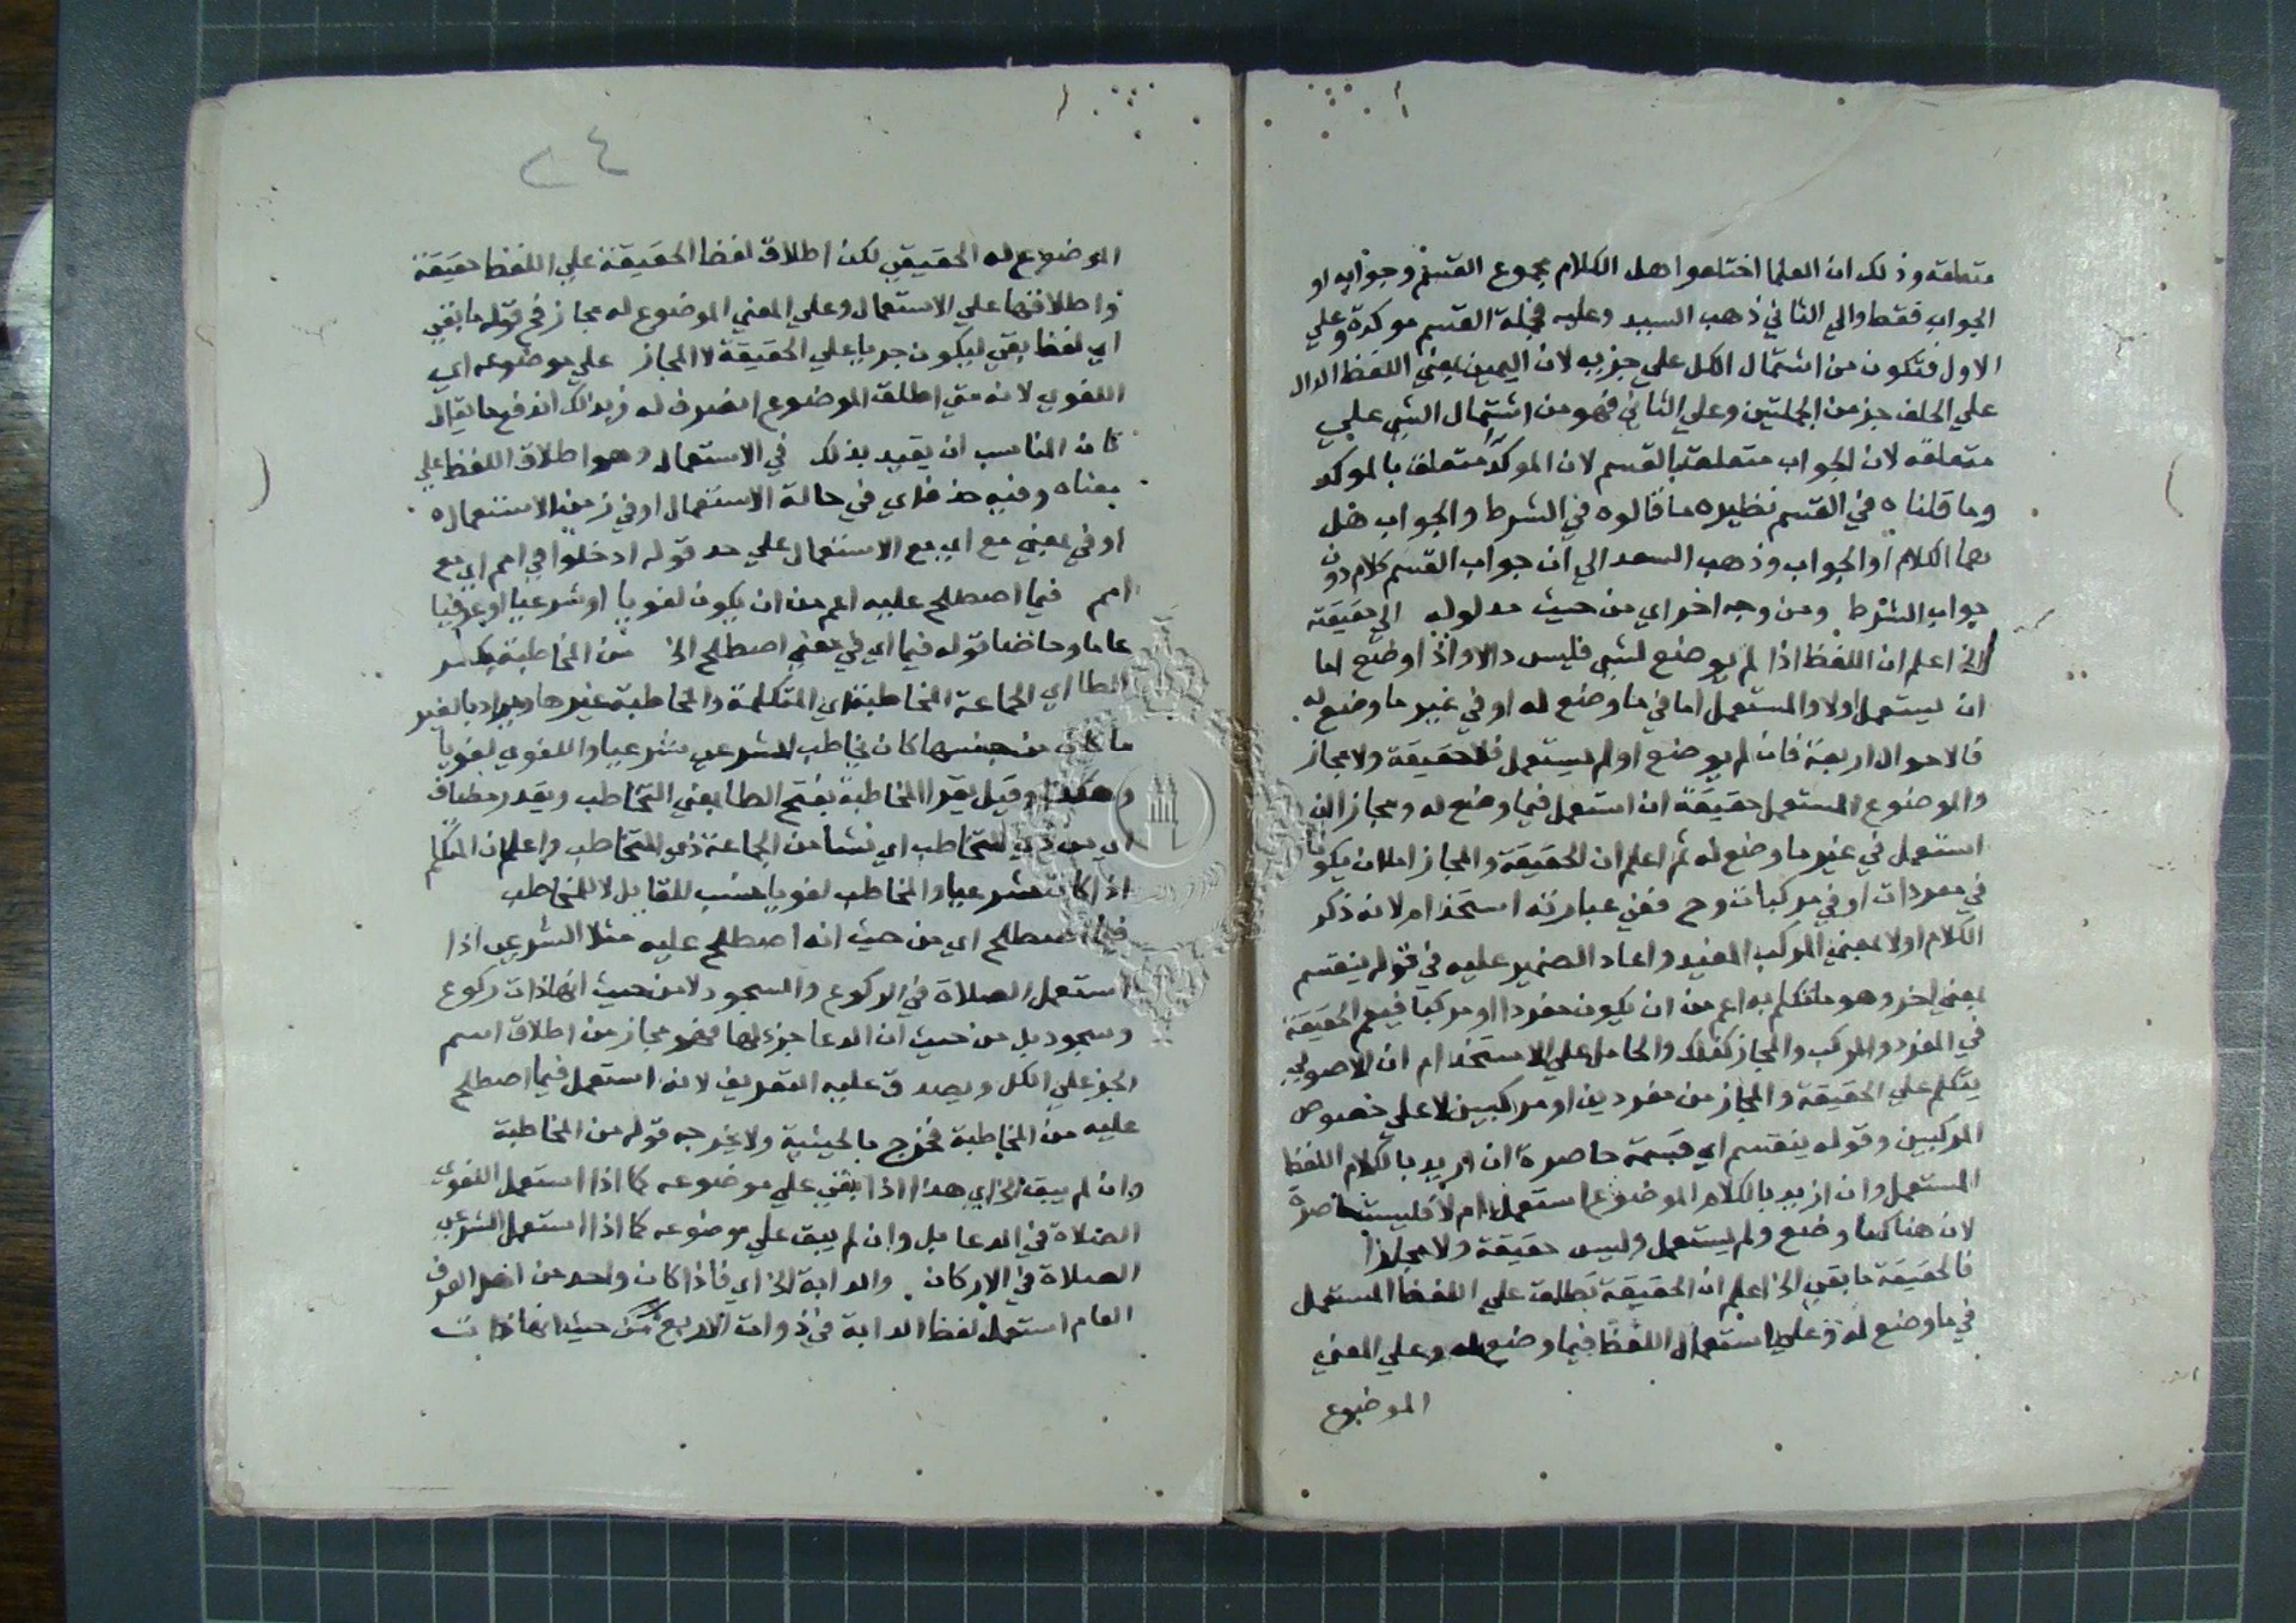 متعلقه وذلك ان العلما اختلفوا هل الكلام مجموع القسم وجوابه او
الجواب فقط والي الثاني ذهب السيد وعليه فجملة القسم موكدة وعلي
الاول فتكون من اشتمال الكل علي جزيه لان اليمين بمعني اللفظ الدال
علي الحلف جز من الجملتين وعلي الثاني فهو من اشتمال الشي علي
متعلقه لان الجواب متعلق بالقسم لان الموكد متعلق بالموكد
وما قلناه في القسم نظيره ما قالوه في الشرط والجواب هل
هما الكلام او الجواب وذهب السعد الي ان جواب القسم كلام دون
جواب الشرط ومن وجه اخر اي من حيث مدلوله الي حقيقة
الخ اعلم ان اللفظ اذا لم يوضع لشي فليس دالا واذا وضع اما
ان يستعمل اولا والمستعمل اما في ما وضع له او في غير ما وضع له
فالاحوال اربعة فان لم يوضع او لم يستعمل فلا حقيقة ولا مجاز
والموضوع المستعمل حقيقة ان استعمل فيما وضع له ومجاز ان
استعمل في غير ما وضع له ثم اعلم ان الحقيقة والمجاز اما ان يكونا
في مفردات او في مركبات وح ففي عبارته استخدام لانه ذكر
الكلام اولا بمعني المركب المفيد واعاد الضمير عليه في قوله ينقسم
بمعني اخر وهو ما تكلم به اعم من ان يكون مفردا او مركبا فيعم الحقيقة
في المفرد والمركب والمجاز كذلك والحامل علي الاستخدام ان الاصولي
يتكلم علي الحقيقة والمجاز من مفردين او مركبين لا علي خصوص
المركبين وقوله ينقسم اي قسمة حاصرة ان اريد بالكلام اللفظ
المستعمل وان اريد بالكلام الموضوع استعمل ام لا فليست حاصرة
لان هناك ما وضع ولم يستعمل وليس حقيقة ولا مجازا
فالحقيقة ما بقي الخ اعلم ان الحقيقة تطلق علي اللفظ المستعمل
في ما وضع له وعلي استعمال اللفظ فيما وضع له وعلي المعني
الموضوع
٢٤
الموضوع له الحقيقي لكن اطلاق لفظ الحقيقة علي اللفظ حقيقة
واطلاقها علي الاستعمال وعلي المعني الموضوع له مجاز فح قوله ما بقي
اي لفظ بقي ليكون جريا علي الحقيقة لا المجاز علي موضوعه اي
اللغوي لانه متي اطلق الموضوع انصرف له وبذلك اندفع ما يقال
كان المناسب ان يقيد بذلك في الاستعمال وهو اطلاق اللفظ علي
معناه وفيه حذف اي في حالة الاستعمال او في زمن الاستعمال
او في بمعني مع اي مع الاستعمال علي حد قوله ادخلوا في امم اي مع
امم فيما اصطلح عليه اعم من ان يكون لغويا او شرعيا او عرفيا
عاما وخاصا قوله فيما اي في معني اصطلح الخ من المخاطبة بكسر
الطا اي الجماعة المخاطبة اي المتكلمة والمخاطبة غيرها ويراد بالغير
ما كان من جنسها كان يخاطب الشرعي شرعيا واللغوي لغويا
وهكذا وقيل يقرا المخاطبة بفتح الطا بمعني التخاطب ويقدر مضاف
اي من ذي التخاطب اي نشا من الجماعة ذي التخاطب واعلم ان المتكلم
اذا كان شرعيا والمخاطب لغويا حسب للقايل لا للمخاطب
فيما اصطلح اي من حيث انه اصطلح عليه مثلا الشرعي اذا
استعمل الصلاة في الركوع والسجود لا من حيث انها ذات ركوع
وسجود بل من حيث ان الدعا جزء لها فهو مجاز من اطلاق اسم
الجز علي الكل ويصدق عليه التعريف لانه استعمل فيما اصطلح
عليه من المخاطبة فخرج بالحيثية ولا يخرجه قوله من المخاطبة
وان لم يبق الخ اي هذا اذا بقي علي موضوعه كما اذا استعمل اللغوي
الصلاة في الدعا بل وان لم يبق علي موضوعه كما اذا استعمل الشرعي
الصلاة في الاركان والدابة الخ اي فاذا كان واحد من اهل العرف
العام استعمل لفظ الدابة في ذوات الاربع من حيث انها ذات